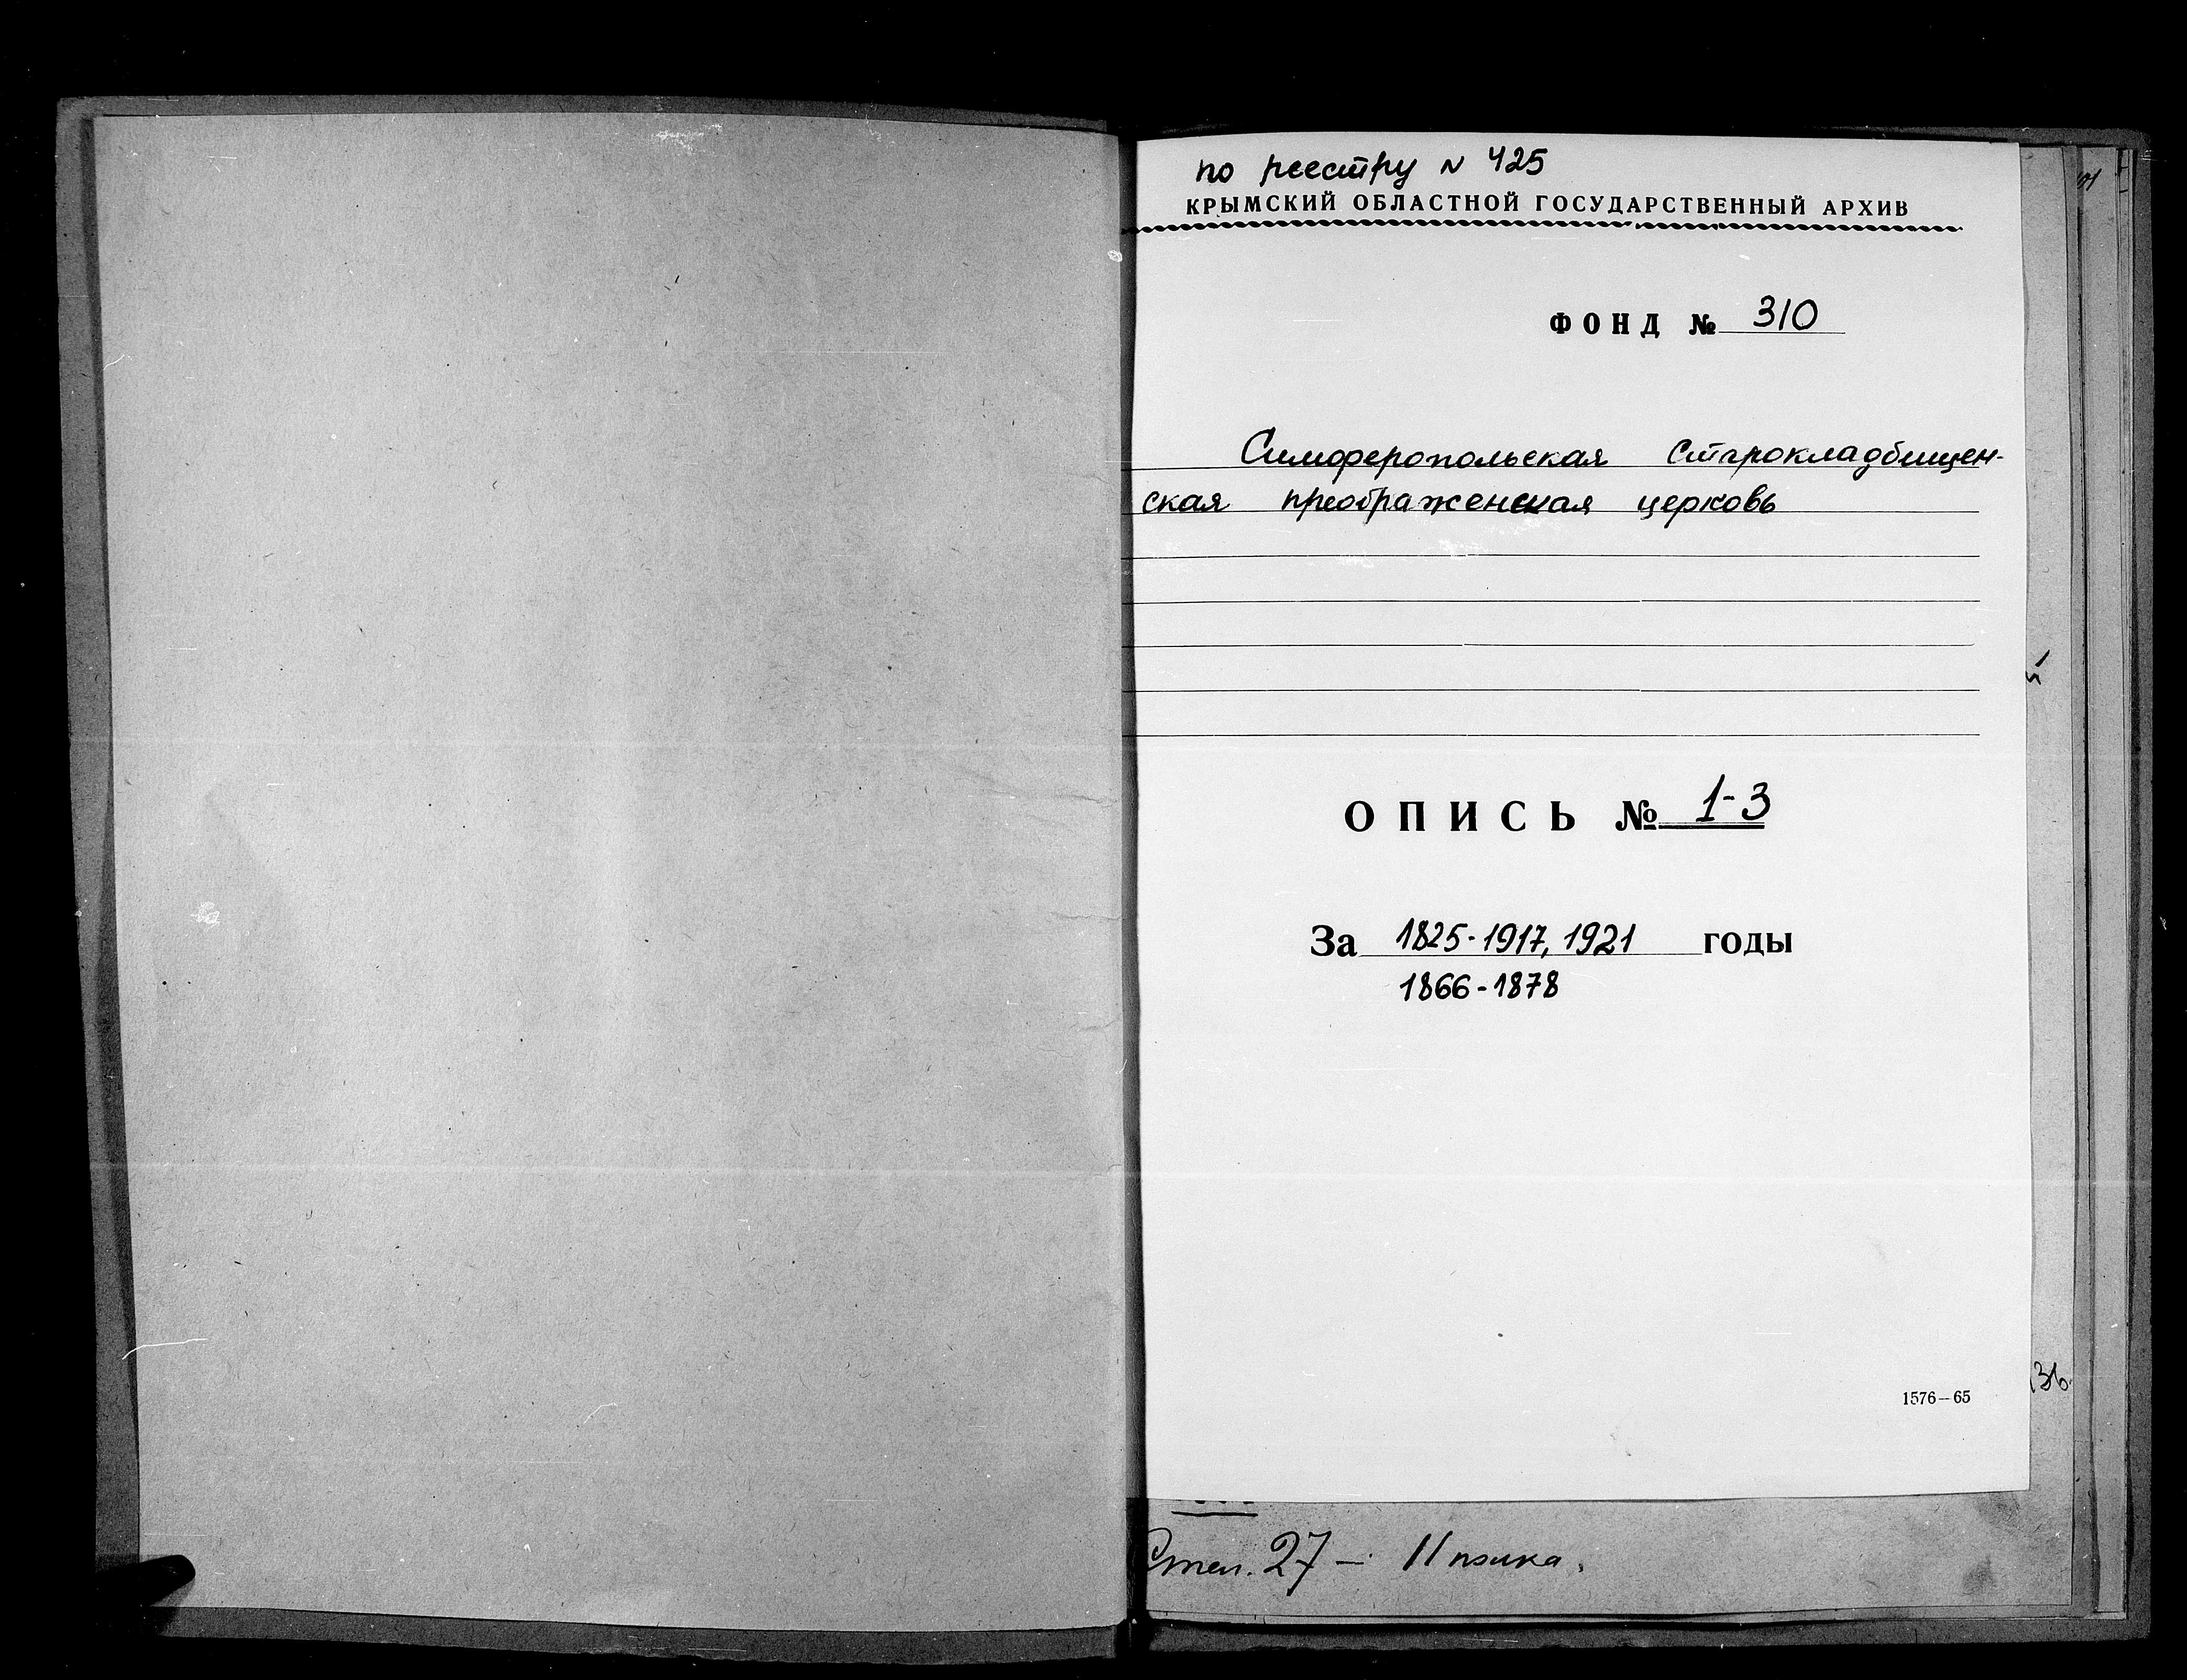 по реестру N 425
КРЫМСКИЙ ОБЛАСТНОЙ ГОСУДАРСТВЕННЫЙ АРХИВ
ФОНД № 310
Симферопольская Старокладбищен-
ская преображенская церковь
ОПИСЬ № 1-3
За 1825-1917, 1921 годы
1866-1878
1576—65
Стел. 27 — 11 полка.